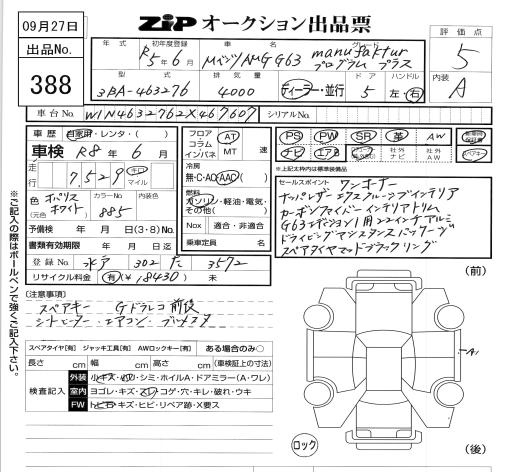 09月27日
ZIP オークション出品票
出品No.
388
年式 初年度登録 車名 グレード 評価点
R5年6月 Mベンツ/AMG G63 manufaktur プログラム プラス 5
型式 排気量 ドア ハンドル 内装
3BA-463276 4000 ディーラー・並行 5 左・右 A
車台No. W1N4632762X467607 シリアルNo.
車歴 自家用・レンタ・( )
車検 R8年 6月
走行 7,529 キロ マイル
色(元色) オパリスホワイト カラーNo. 885 内装色
予備検 年 月 日(3・8)No.
書類有効期限 年 月 日迄
登録No. 水戸 302 た 3572
リサイクル料金 有(¥18430) 未
フロア コラム インパネ AT MT 速
冷房 無・AC・AAC( )
燃料 ガソリン・軽油・電気・その他( )
Nox 適合・非適合
乗車定員 名
PS PW SR 革 AW
ナビ エアB 社外ナビ 社外AW スペアキー
※上記太枠内は標準装備品
セールスポイント ワンオーナー
ナッパレザーエクスクルーシブインテリア
カーボンファイバーインテリアトリム
G63エディション1用22インチアルミ
ドライビングアシスタンスパッケージ
スペアタイヤマッドブラックリング
[注意事項]
スペアキー Gドラレコ前後
シートヒーター・エアコン・ブルメスタ
スペアタイヤ[有] ジャッキ工具[有] AWロックキー[有] ある場合のみ〇
長さ cm 幅 cm 高さ cm (車検証上の寸法)
検査記入
外装 小キズ・凹・シミ・ホイルA・ドアミラー(A・ワレ)
室内 ヨゴレ・キズ・スレ・コゲ・穴・キレ・破れ・ウキ
FW トビ石・キズ・ヒビ・リペア跡・X要ス
(前)
A
ロック
(後)
※ご記入の際はボールペンで強くご記入下さい。